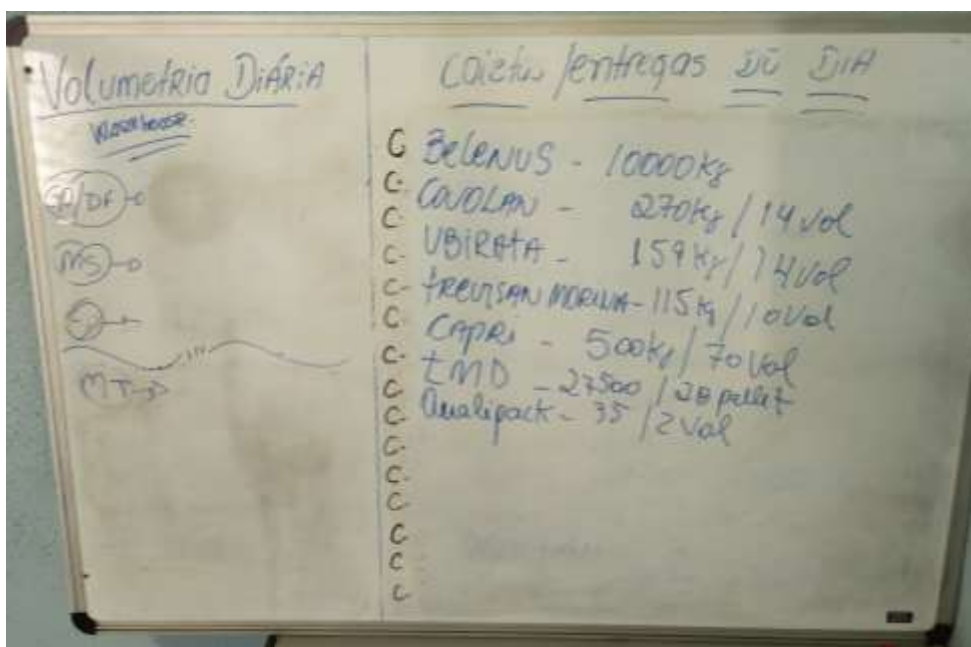 Volumetria Diária
Warehouse
/DF
MS
MT
/entregas DO DIA
C Belenus - 10000Kg
C COVOLAN - 270Kg / 14 vol
C UBIRATA - 159 Kg / 14 Vol
C TREVISAN - 115 Kg / 10 Vol
C CAPRI - 500 Kg / 70 Vol
C - 27500 / 28 pallet
C Qualipack - 35 / 2 Vol
C
C
C
C
C
C